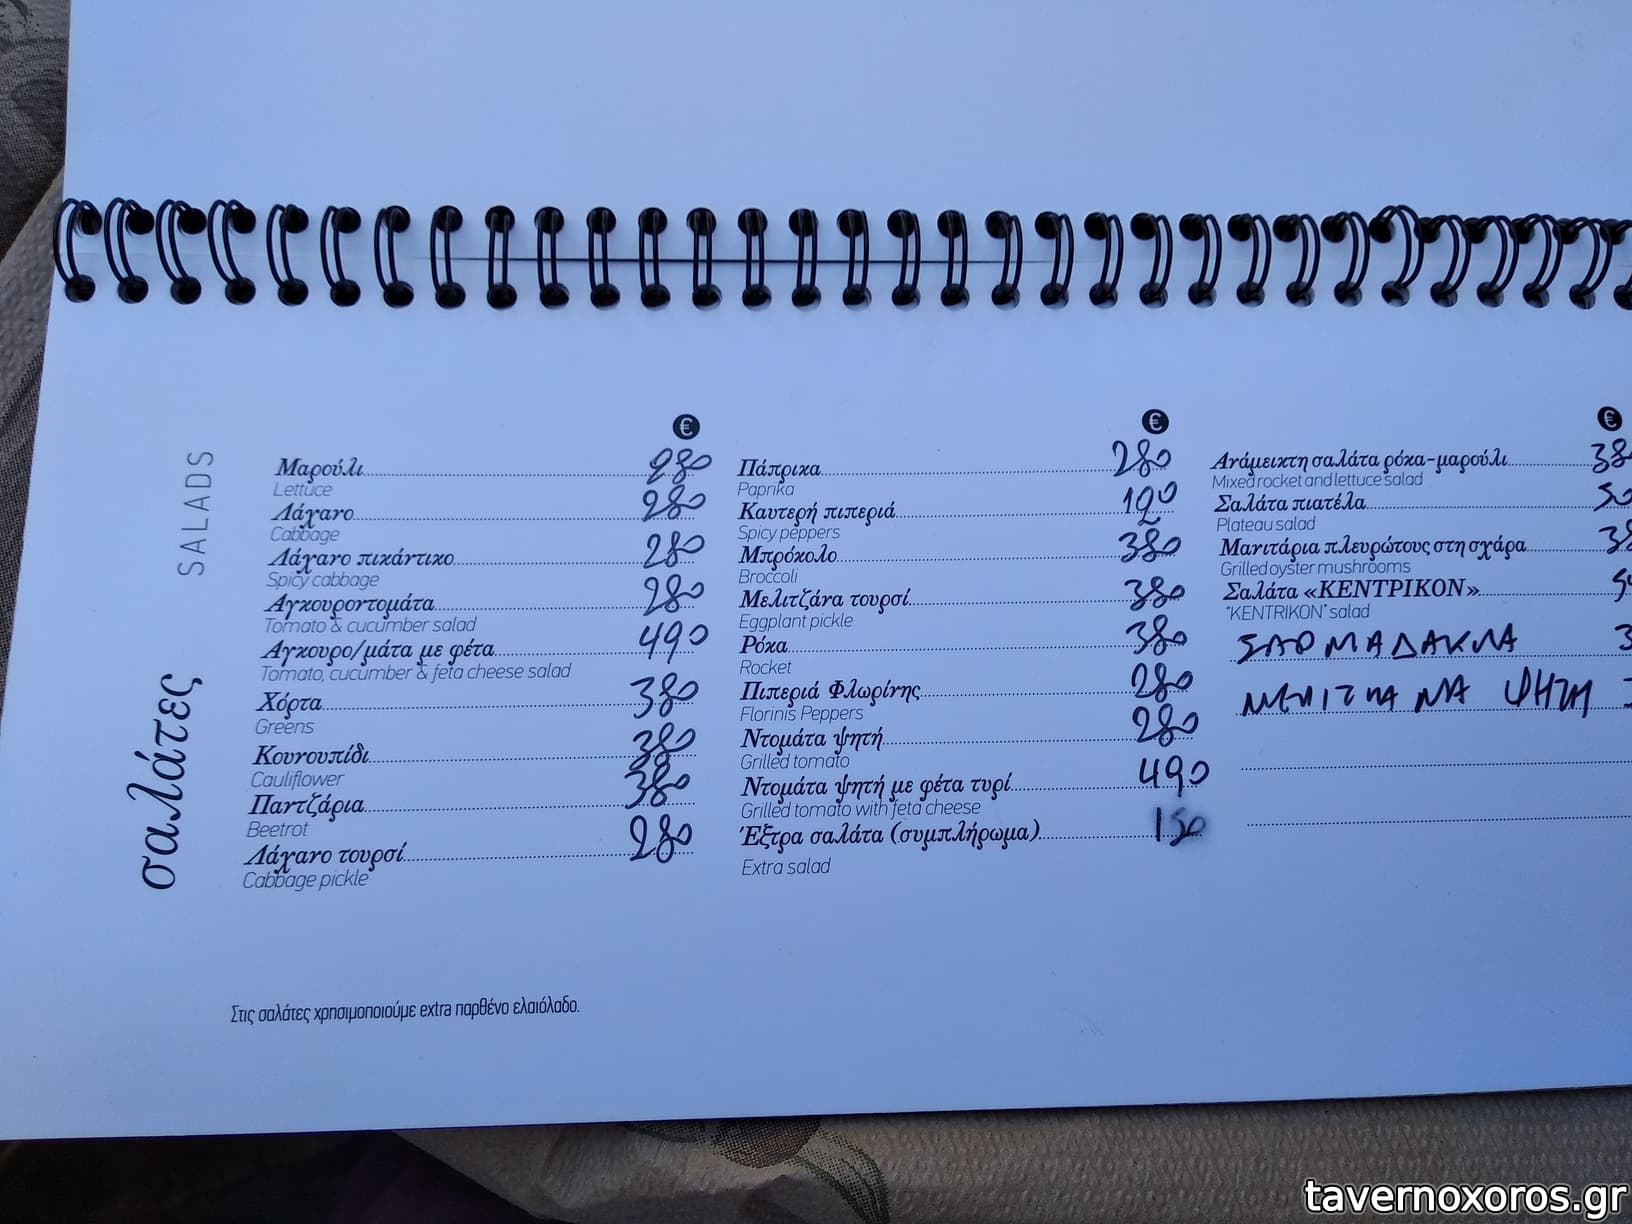 σαλάτες
SALADS
€
Μαρούλι 280
Lettuce
Λάχανο 280
Cabbage
Λάχανο πικάντικο 280
Spicy cabbage
Αγκουροντομάτα 280
Tomato & cucumber salad
Αγκουρο/μάτα με φέτα 490
Tomato, cucumber & feta cheese salad
Χόρτα 380
Greens
Κουνουπίδι 380
Cauliflower
Παντζάρια 380
Beetrot
Λάχανο τουρσί 280
Cabbage pickle
€
Πάπρικα 280
Paprika
Καυτερή πιπεριά
Spicy peppers
Μπρόκολο 380
Broccoli
Μελιτζάνα τουρσί 380
Eggplant pickle
Ρόκα 380
Rocket
Πιπεριά Φλωρίνης 280
Florinis Peppers
Ντομάτα ψητή 280
Grilled tomato
Ντομάτα ψητή με φέτα τυρί 490
Grilled tomato with feta cheese
Έξτρα σαλάτα (συμπλήρωμα) 150
Extra salad
€
Ανάμεικτη σαλάτα ρόκα-μαρούλι 38
Mixed rocket and lettuce salad
Σαλάτα πιατέλα
Plateau salad
Μανιτάρια πλευρώτους στη σχάρα 38
Grilled oyster mushrooms
Σαλάτα «ΚΕΝΤΡΙΚΟΝ»
"KENTRIKON" salad
ΨΗΤΗ
Στις σαλάτες χρησιμοποιούμε extra παρθένο ελαιόλαδο.
tavernoxoros.gr